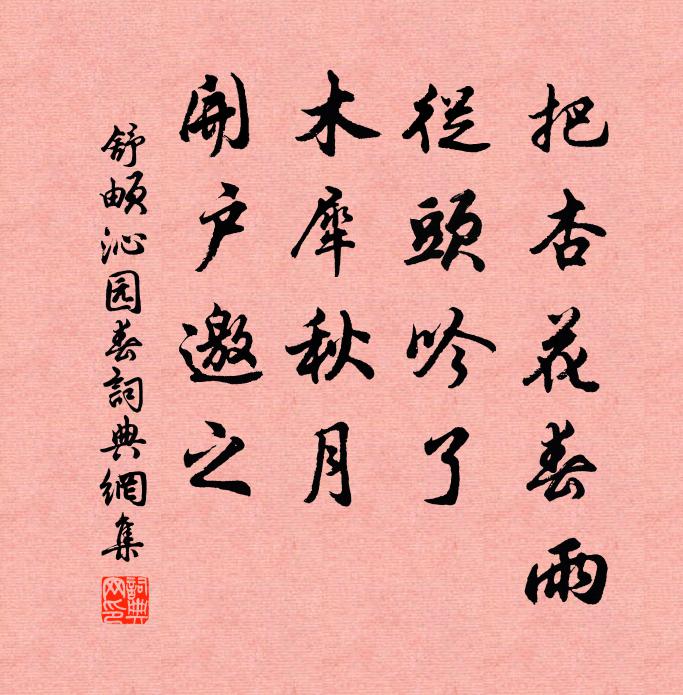 把杏花春雨
從頭吟了
木犀秋月
開戶邀之
舒頔沁园春詞典網集
詞典
网印